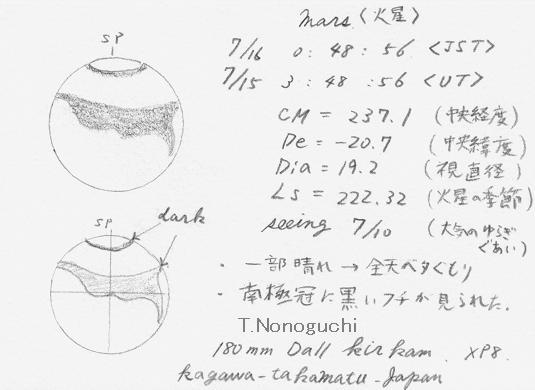 Mars〈火星〉
SP
7/16 0 : 48 : 56 <JST>
7/15 3 : 48 : 56 <UT>
CM = 237.1 (中央経度)
De = -20.7 (中央緯度)
Dia = 19.2 (視直径)
Ls = 222.32 (火星の季節)
SP
dark
seeing 7/10 (大気のゆらぎ
ぐあい)
・一部晴れ → 全天ベタぐもり
・南極冠に黒いフチが見られた.
T.Nonoguchi
180mm Dall kirkam. XP8.
kagawa-takamatu-Japan